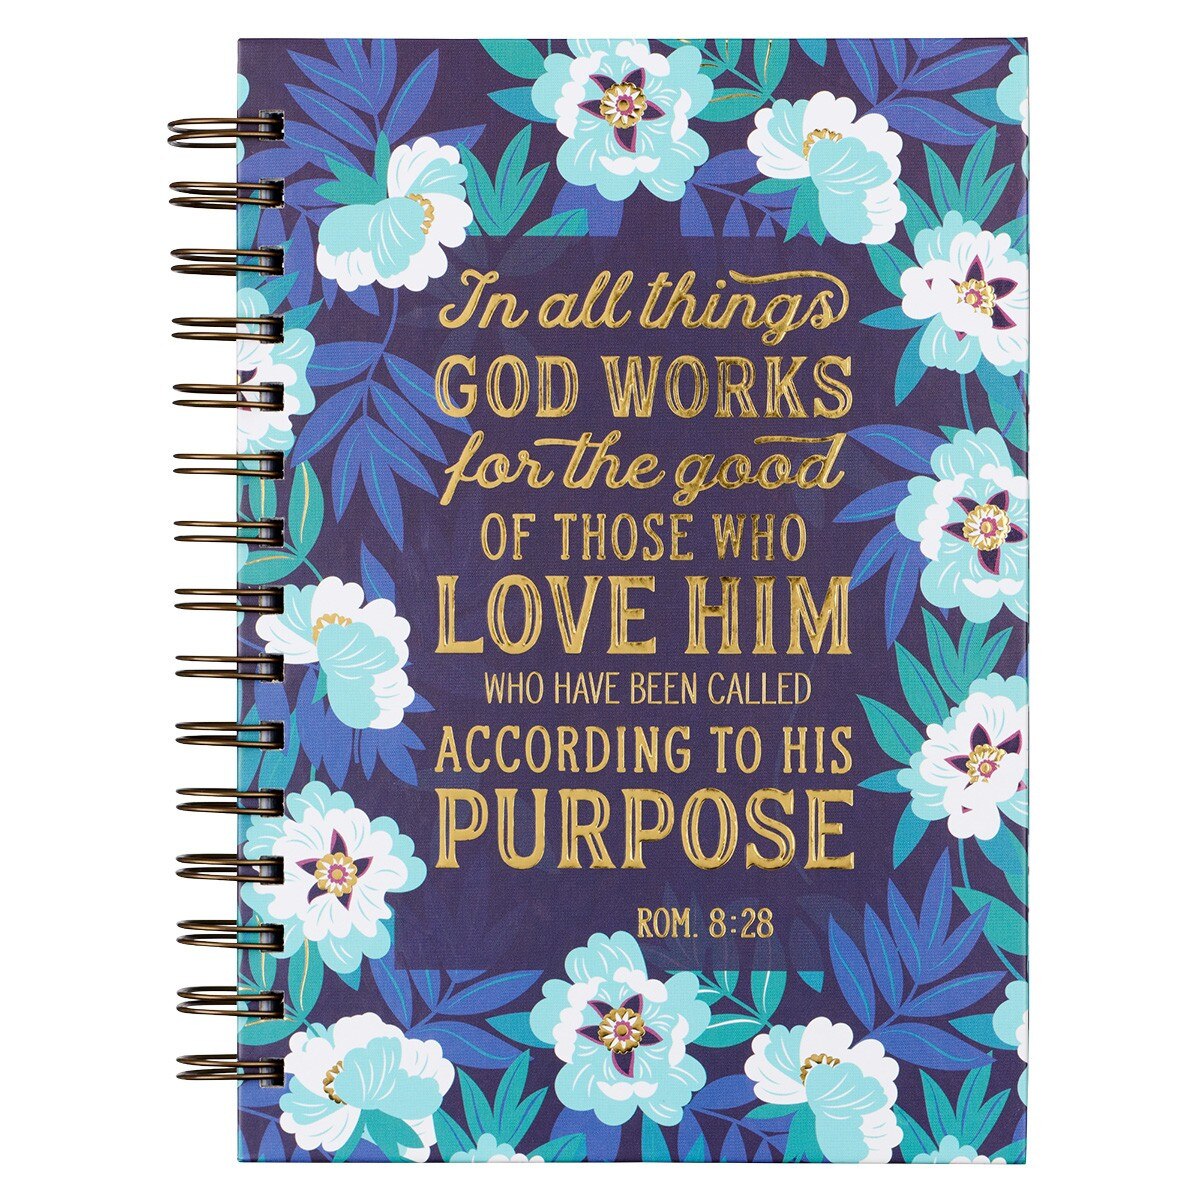 In all things
GOD WORKS
for the good
OF THOSE WHO
LOVE HIM
WHO HAVE BEEN CALLED
ACCORDING TO HIS
PURPOSE
ROM. 8:28